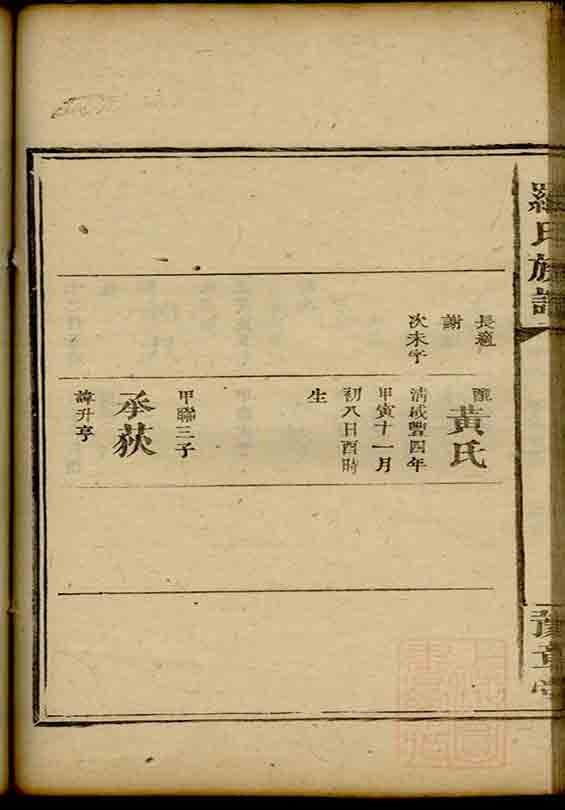 羅氏族譜
豫章堂
長適
謝
次未字
配
黃氏
清咸豐四年
甲寅十一月
初八日酉時
生
甲聯三子
承荻
諱升亨